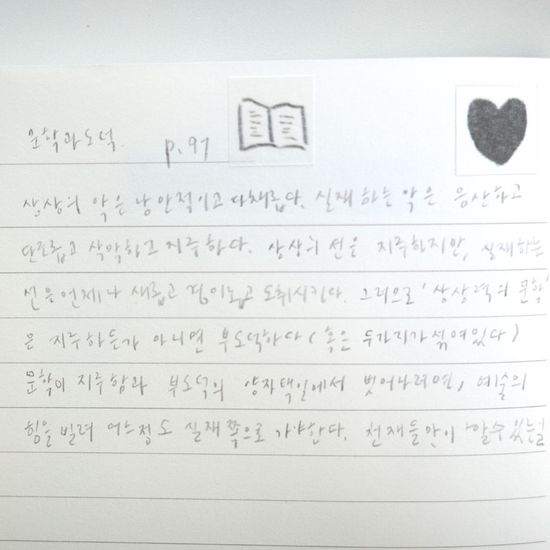 문학과 도덕. p.97
상상의 악은 낭만적이고 다채롭다. 실재하는 악은 음산하고
단조롭고 삭막하고 지루하다. 상상의 선은 지루하지만, 실재하는
선은 언제나 새롭고 경이롭고 도취시킨다. 그러므로 '상상력의 문학'
은 지루하든가 아니면 부도덕하다 (혹은 두가지가 섞여있다)
문학이 지루함과 부도덕의 양자택일에서 벗어나려면, 예술의
힘을 빌려 어느정도 실재쪽으로 가야한다. 천재들만이 할수있는일